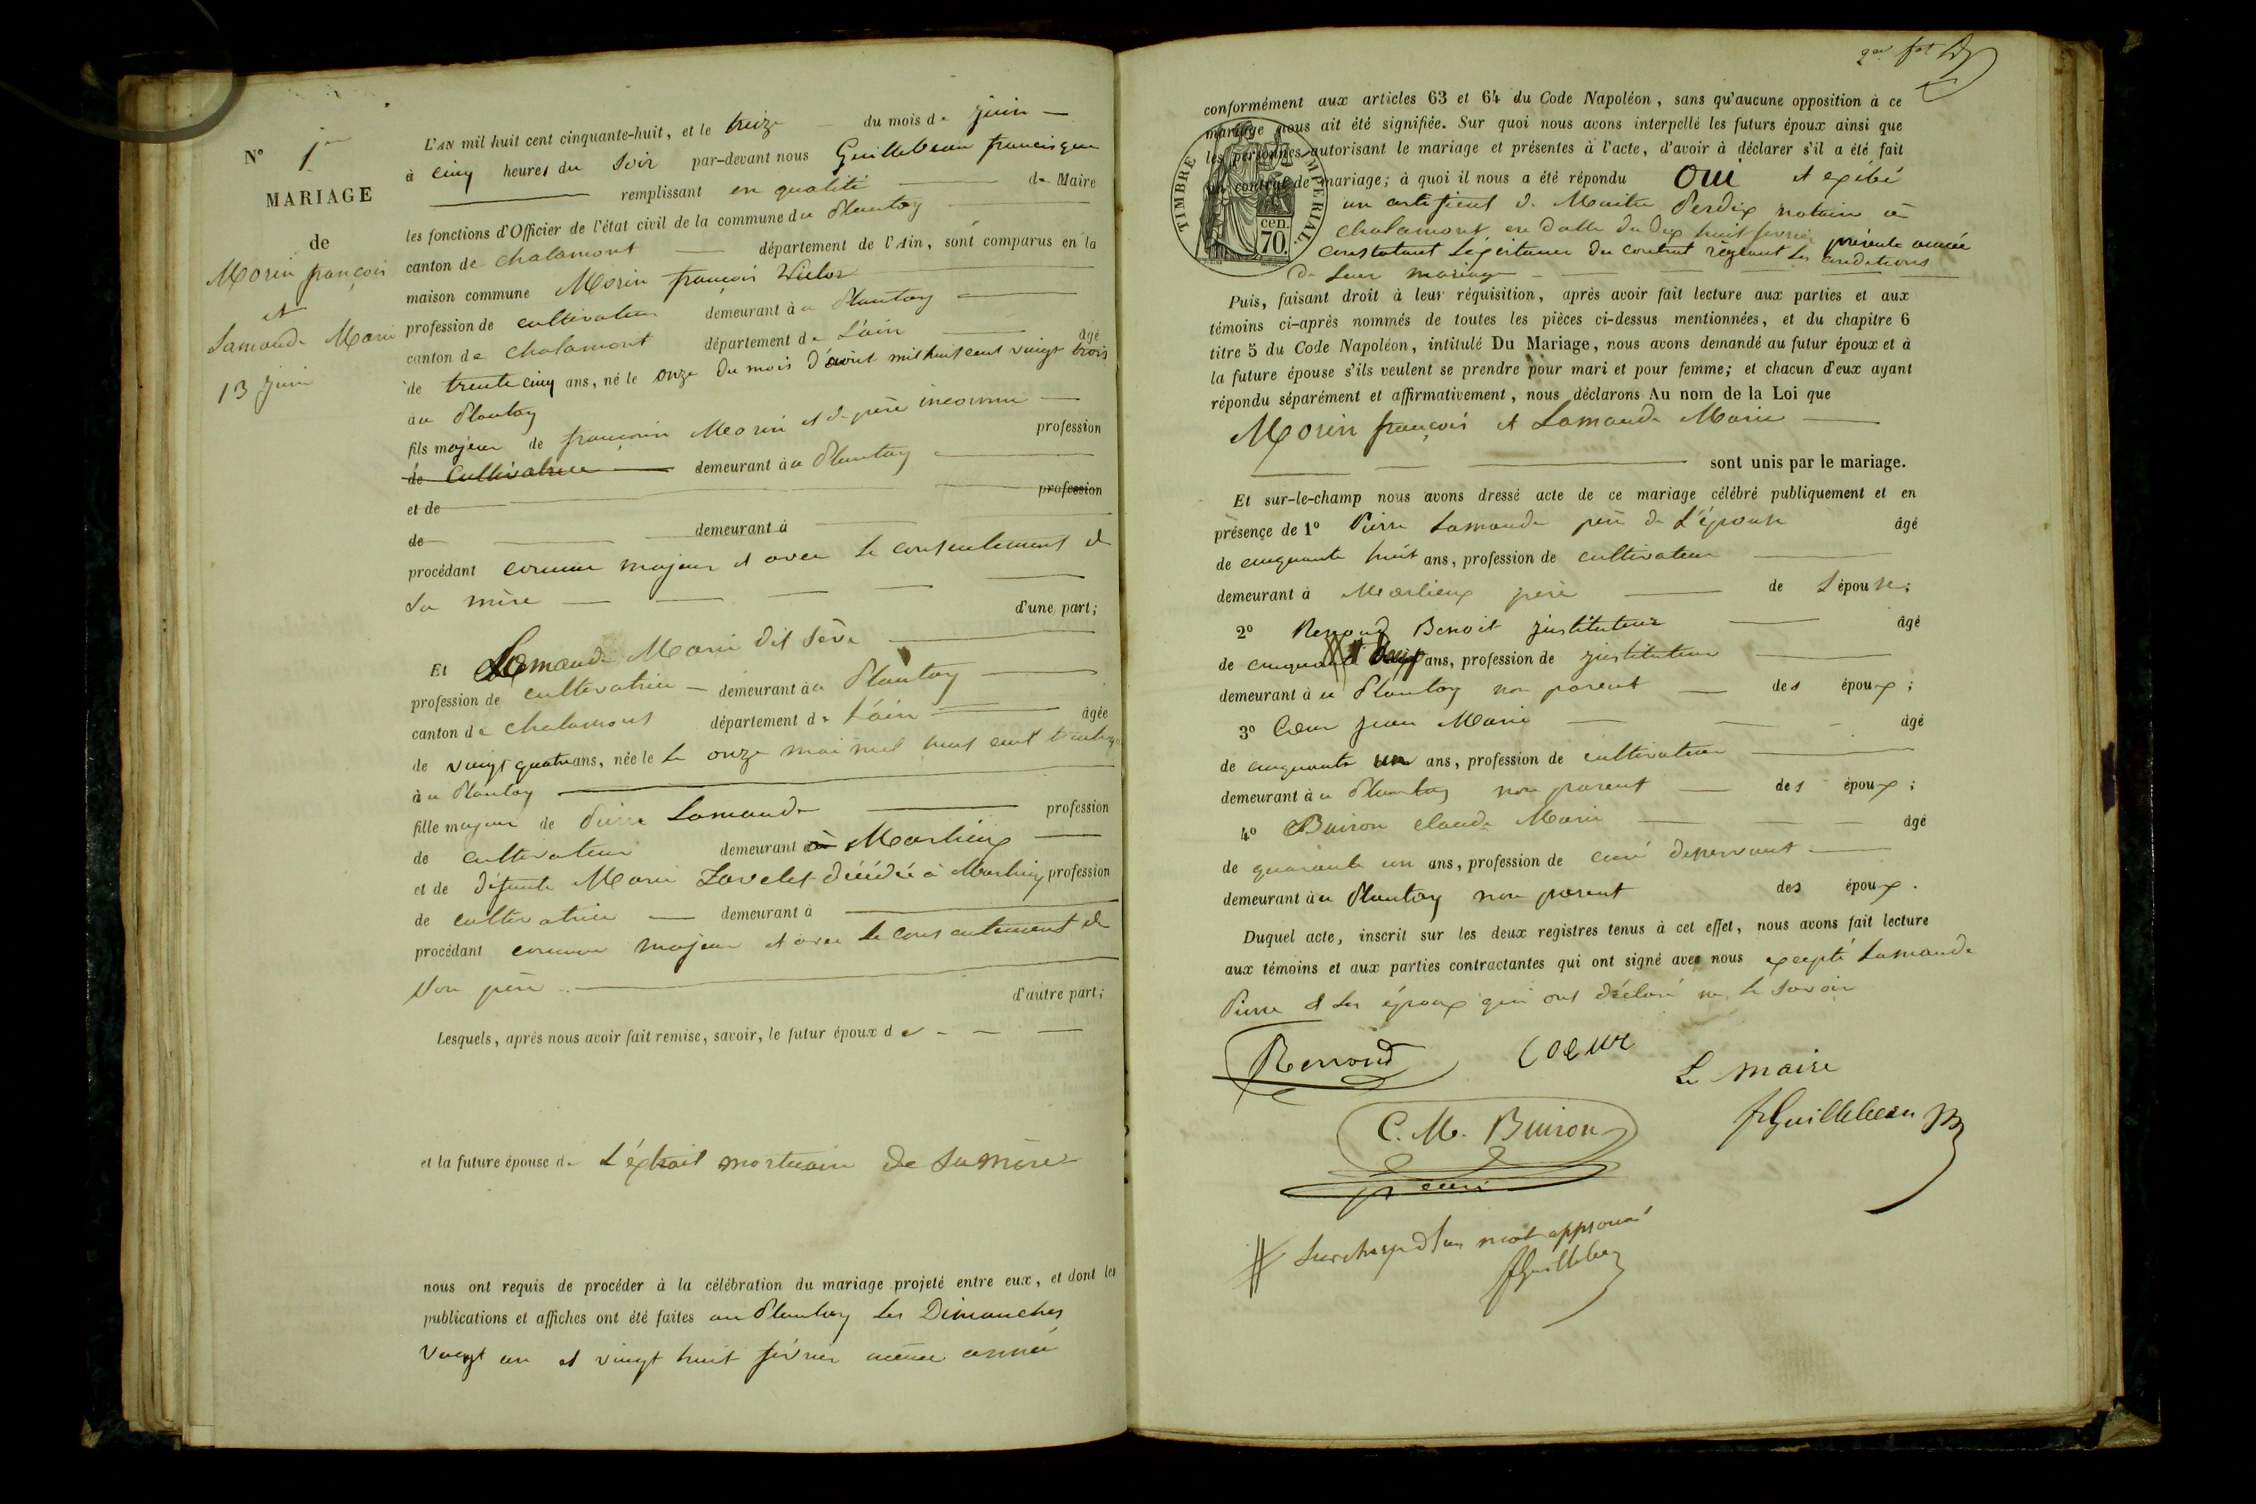 N° 1er
MARIAGE
de
Morin françois
et
Lamande Marie
13 juin
L'AN mil huit cent cinquante-huit, et le treize du mois de juin
à cinq heures du soir par-devant nous Guillebeau francisque
remplissant en qualité de Maire
les fonctions d'Officier de l'état civil de la commune du Plantay
canton de chalamont département de l'Ain, sont comparus en la
maison commune Morin françois
profession de cultivateur demeurant au Plantay
canton de chalamont département de L'ain âgé
de trente cinq ans, né le onze du mois d'aout mil huit cent vingt trois
au Plantay
fils majeur de françoise Morin et de père inconnu profession
de cultivatrice demeurant au Plantay
et de profession
de demeurant à
procédant comme majeur et avec le consentement de
sa mère d'une part;
Et Lamande Marie dit sève
profession de cultivatrice demeurant au Plantay
canton de chalamont département de L'ain âgée
de vingt quatre ans, née le le onze mai mil huit cent trente
au Plantay
fille majeure de Pierre Lamande profession
de cultivateur demeurant à Marlieux
et de défunte Marie décédée à Marlieux profession
de cultivatrice demeurant à
procédant comme majeur et avec le consentement de
son père d'autre part;
Lesquels, après nous avoir fait remise, savoir, le futur époux de
et la future épouse de L'extrait mortuaire de sa mère
nous ont requis de procéder à la célébration du mariage projeté entre eux, et dont les
publications et affiches ont été faites au Plantay les Dimanches
vingt un et vingt huit février même année
conformément aux articles 63 et 64 du Code Napoléon, sans qu'aucune opposition à ce
mariage nous ait été signifiée. Sur quoi nous avons interpellé les futurs époux ainsi que
les personnes autorisant le mariage et présentes à l'acte, d'avoir à déclarer s'il a été fait
un contrat de mariage; à quoi il nous a été répondu Oui et exibé
un certificat de Maitre Perdrix notaire à
chalamont en datte du dix huit février présente année
constatant L'existance du contrat régeant les conditions
de leur mariage
TIMBRE IMPERIAL.
70 cen.
Puis, faisant droit à leur réquisition, après avoir fait lecture aux parties et aux
témoins ci-après nommés de toutes les pièces ci-dessus mentionnées, et du chapitre 6
titre 5 du Code Napoléon, intitulé Du Mariage, nous avons demandé au futur époux et à
la future épouse s'ils veulent se prendre pour mari et pour femme; et chacun d'eux ayant
répondu séparément et affirmativement, nous déclarons Au nom de la Loi que
Morin françois et Lamande Marie
sont unis par le mariage.
Et sur-le-champ nous avons dressé acte de ce mariage célébré publiquement et en
présence de 1° Pierre Lamande père de L'épouse âgé
de cinquante huit ans, profession de cultivateur
demeurant à Marlieux père de L'épouse;
2° Renoud Benoit instituteur âgé
de cinquante ans, profession de instituteur
demeurant au Plantay non parent des époux;
3° Cœur jean Marie âgé
de cinquante un ans, profession de cultivateur
demeurant au Plantay non parent des époux;
4° Buiron claude Marie âgé
de quarante un ans, profession de curé desservant
demeurant au Plantay non parent des époux.
Duquel acte, inscrit sur les deux registres tenus à cet effet, nous avons fait lecture
aux témoins et aux parties contractantes qui ont signé avec nous excepté Lamande
Pierre et les époux qui ont déclaré ne le savoir
Renoud Coeur
Le maire
C. M. Buiron
curé
fGuillebeau
surcharge d'un mot approuvé
fGuillebeau